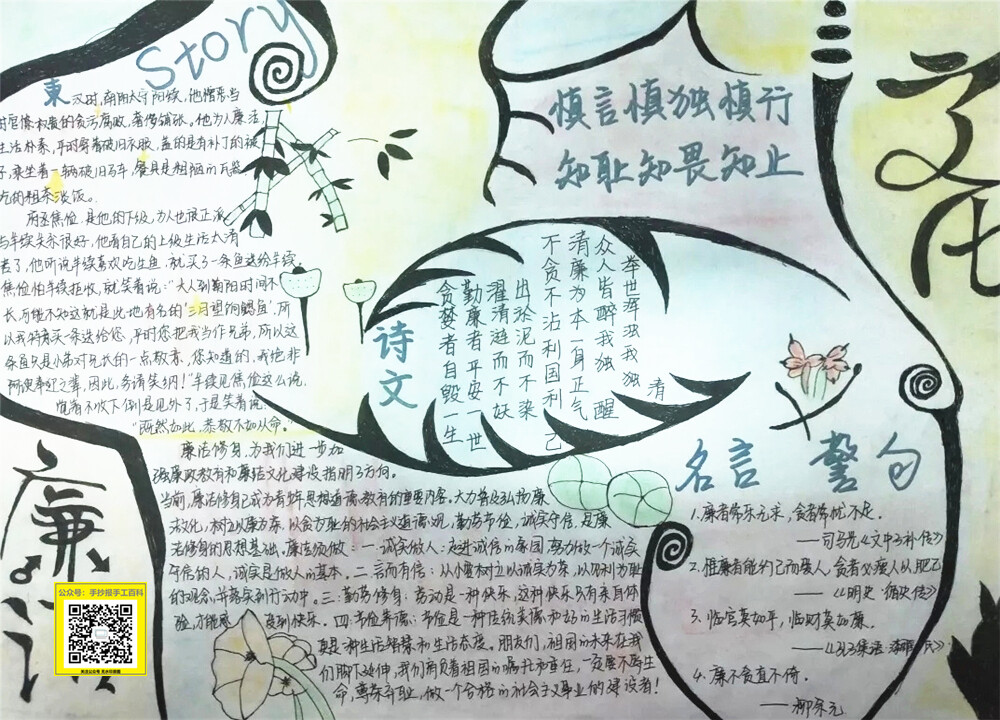 Story
東汉时,南阳太守羊续,他憎恶当
时官僚权贵的贪污腐败,奢侈铺张。他为人廉洁,
生活朴素,平时穿着破旧衣服,盖的是有补丁的被
子,乘坐着一辆破旧马车,餐具是粗陋的瓦器
吃的粗茶淡饭。
府丞焦俭,是他的下级,为人也很正派
与羊续关系很好,他看自己的上级生活太清
苦了,他听说羊续喜欢吃生鱼,就买了一条鱼送给羊续。
焦俭怕羊续拒收,就笑着说:"大人到南阳时间不
长,可能不知这就是此地有名的'三月望饷鲤鱼',所
以我特意买一条送给您,平时您把我当作兄弟,所以这
条鱼只是小弟对兄长的一点敬意,您知道的,我绝非
阿谀奉迎之辈,因此,务请笑纳!"羊续见焦俭这么说,
觉得不收下倒是见外了,于是笑着说:
"既然如此,恭敬不如从命。"
慎言慎独慎行
知耻知畏知止
文化
诗文
举世浑浊我独清
众人皆醉我独醒
清廉为本一身正气
不贪不沾利国利己
出淤泥而不染
濯清涟而不妖
勤廉者平安一世
贪婪者自毁一生
廉洁修身,为我们进一步加
强廉政教育和廉洁文化建设指明了方向。
当前,廉洁修身已成为青少年思想道德教育的重要内容。大力普及弘扬廉
洁文化,树立以廉为荣,以贪为耻的社会主义道德观,勤劳节俭,诚实守信,是廉
洁修身的思想基础,廉洁须做:一.诚实做人:走进诚信的家园,努力做一个诚实
守信的人,诚实是做人的基本。二.言而有信:从小要树立以诚实为荣,以见利为耻
的观念,并落实到行动中。三.勤劳修身:劳动是一种快乐,这种快乐只有亲自体
验,才能感受到快乐。四.节俭养德:节俭是一种传统美德和好的生活习惯
更是一种生活智慧和生活态度。朋友们,祖国的未来在我
们脚下延伸,我们肩负着祖国的腾飞和重任,一定要不辱生
命,尊荣弃耻,做一个合格的社会主义事业的建设者!
名言警句
1.廉者常乐无求,贪者常忧不足。
——司马光《文中子补传》
2.惟廉者能约己而爱人,贪者必瘦人以肥己
——《明史·循吏传》
3.临官莫如平,临财莫如廉。
4.廉不贪直不倚。
——柳宗元
廉洁
公众号:手抄报手工百科